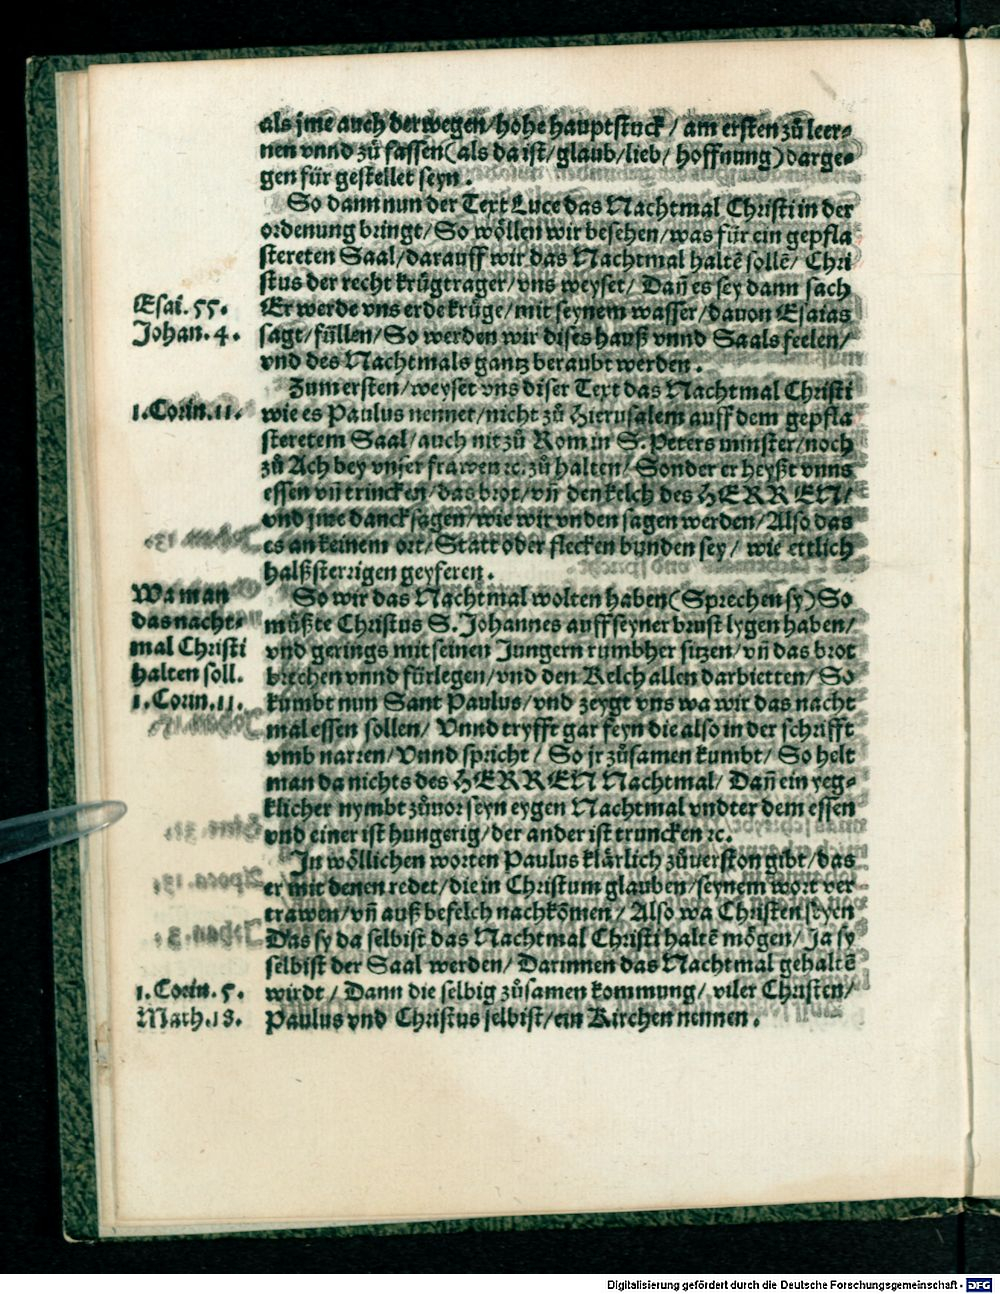 als jme auch derwegen/hohe hauptstuck/ am ersten zů leer⸗
nen vnnd zů fassen(als da ist/glaub/lieb/ hoffnung)darge⸗
gen für gestellet seyn.
So dann nun der Text Luce das Nachtmal Christi in der
ordenung bringt/So wöllen wir besehen/was für ein gepfla
stereten Saal/darauff wir das Nachtmal haltē sollē/ Chri
stus der recht krügtrager/vns weyset/ Dañ es sey dann sach
Esai. 55.
Er werde vns erde krüge/mit seynem wasser/dauon Esaias
Johan. 4.
sagt/füllen/So werden wir dises hauß vnnd Saals feelen/
vnd des Nachtmals gantz beraubt werden.
Zum ersten/weyset vns diser Text das Nachtmal Christi
1. Corin. 11.
wie es Paulus nennet/nicht zů Hierusalem auff dem gepfla
steretem Saal/auch nit zů Rom in S. Peters minster/noch
zů Ach bey vnser frawen ꝛc. zů halten/ Sonder er heyßt vnns
essen vñ trincken/das brot/vñ den kelch des HERREN/
vnd jme danck sagen/wie wir vnden sagen werden/Also das
es an keinem ort/Statt oder flecken bunden sey/ wie ettlich
halßsterrigen geyferen.
Wa man
das nacht⸗
mal Christi
halten soll.
1. Corin. 11.
So wir das Nachtmal wolten haben(Sprechen sy)So
müßte Christus S. Johannes auff seyner brust lygen haben/
vnd gerings mit seinen Jungern rumbher sitzen/vñ das brot
brechen vnnd fürlegen/vnd den Kelch allen darbietten/So
kumbt nun Sant Paulus/vnd zeygt vns wa wir das nacht
mal essen sollen/ Vnnd tryfft gar feyn die also in der schrifft
vmb narren/Vnnd spricht/ So jr zůsamen kumbt/So helt
man da nichts des HERREN Nachtmal/ Dañ ein yeg⸗
klicher nymbt zůuor seyn eygen Nachtmal vndter dem essen
vnd einer ist hungerig/der ander ist truncken ꝛc.
In wöllichen worten Paulus klärlich zůuerston gibt/das
er mit denen redet/die in Christum glauben/seynem wort ver
trawen/vñ auß befelch nachkōmen/ Also wa Christen seyen
Das sy da selbist das Nachtmal Christi haltē mögen/Ja sy
selbist der Saal werden/ Darinnen das Nachtmal gehaltē
1. Corin. 5.
wirdt/ Dann die selbig zůsamen kommung/ viler Christen/
Math. 18.
Paulus vnd Christus selbist/ein Kirchen nennen.
Digitalisierung gefördert durch die Deutsche Forschungsgemeinschaft - DFG